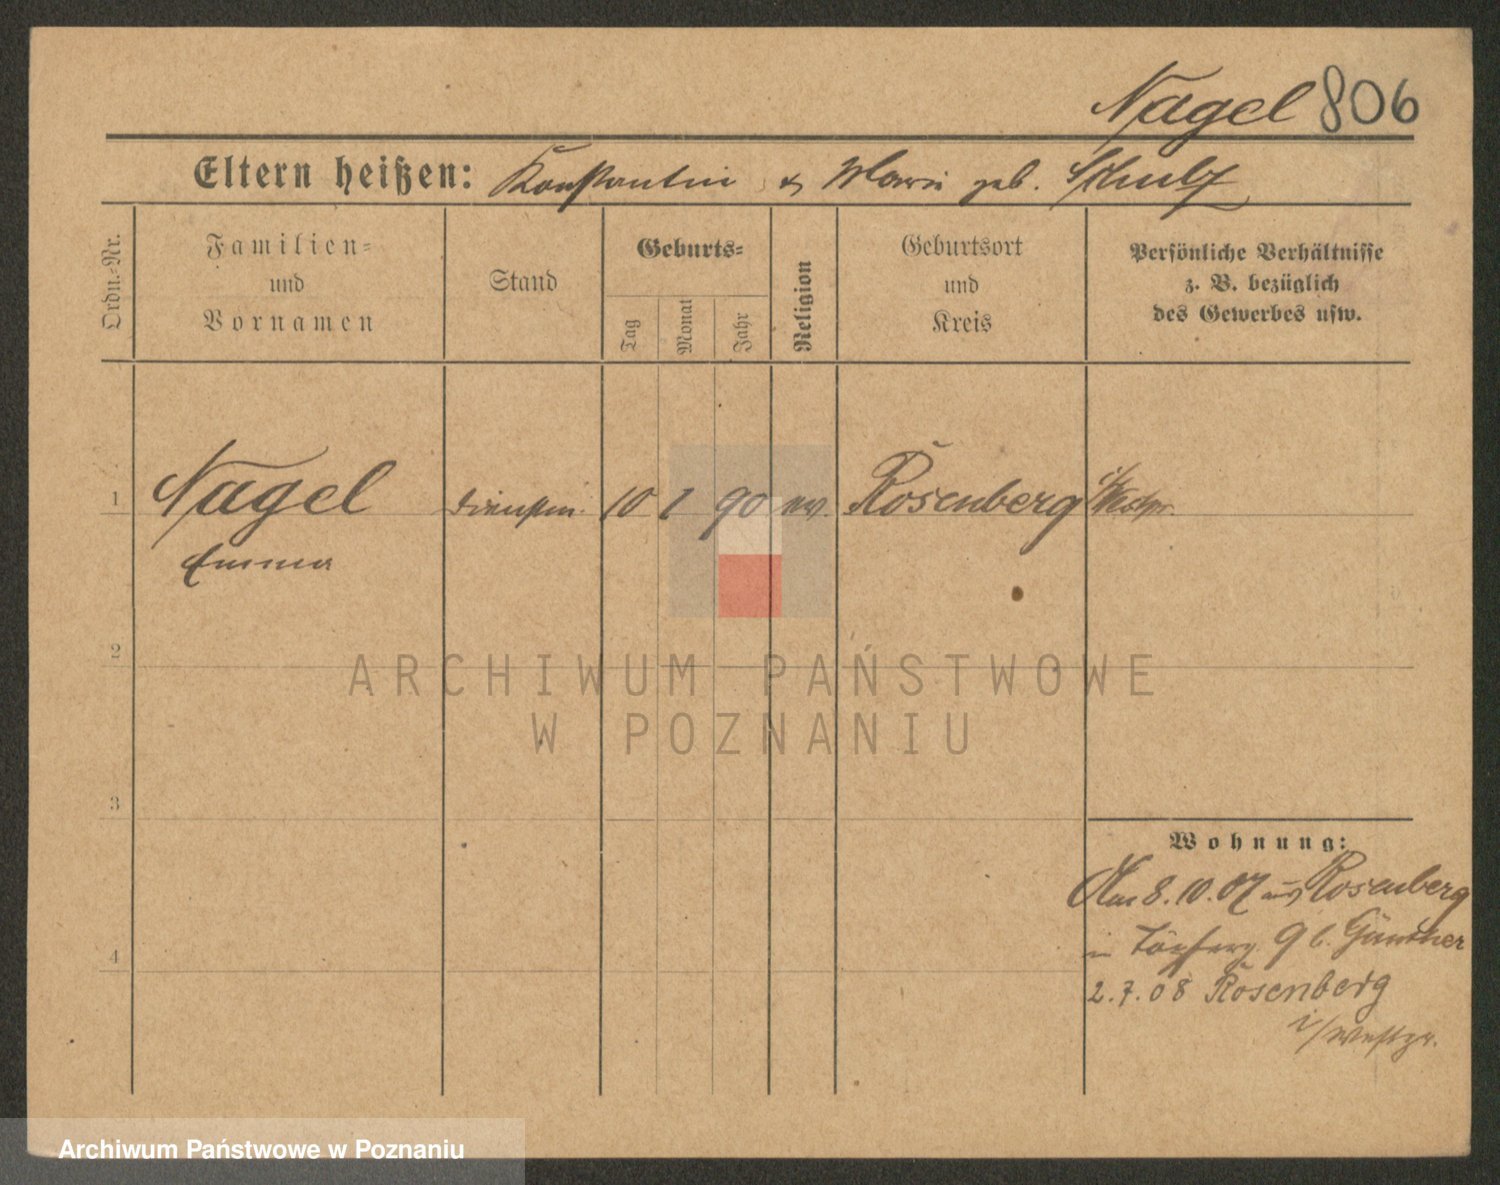 Nagel 806
Eltern heißen: Konstantin & Marie geb. Schulz
Ordn.-Nr.
Familien-
und
Vornamen
Stand
Geburts-
Tag
Monat
Jahr
Religion
Geburtsort
und
Kreis
Persönliche Verhältnisse
z. B. bezüglich
des Gewerbes usw.
1 Nagel Dienstm. 10 1 90 ev. Rosenberg i/Westpr.
Emma
2
3
4
Wohnung:
Am 8.10.07 aus Rosenberg
in 9 b. Günther
2.7.08 Rosenberg
i/Westpr.
ARCHIWUM PAŃSTWOWE
W POZNANIU
Archiwum Państwowe w Poznaniu